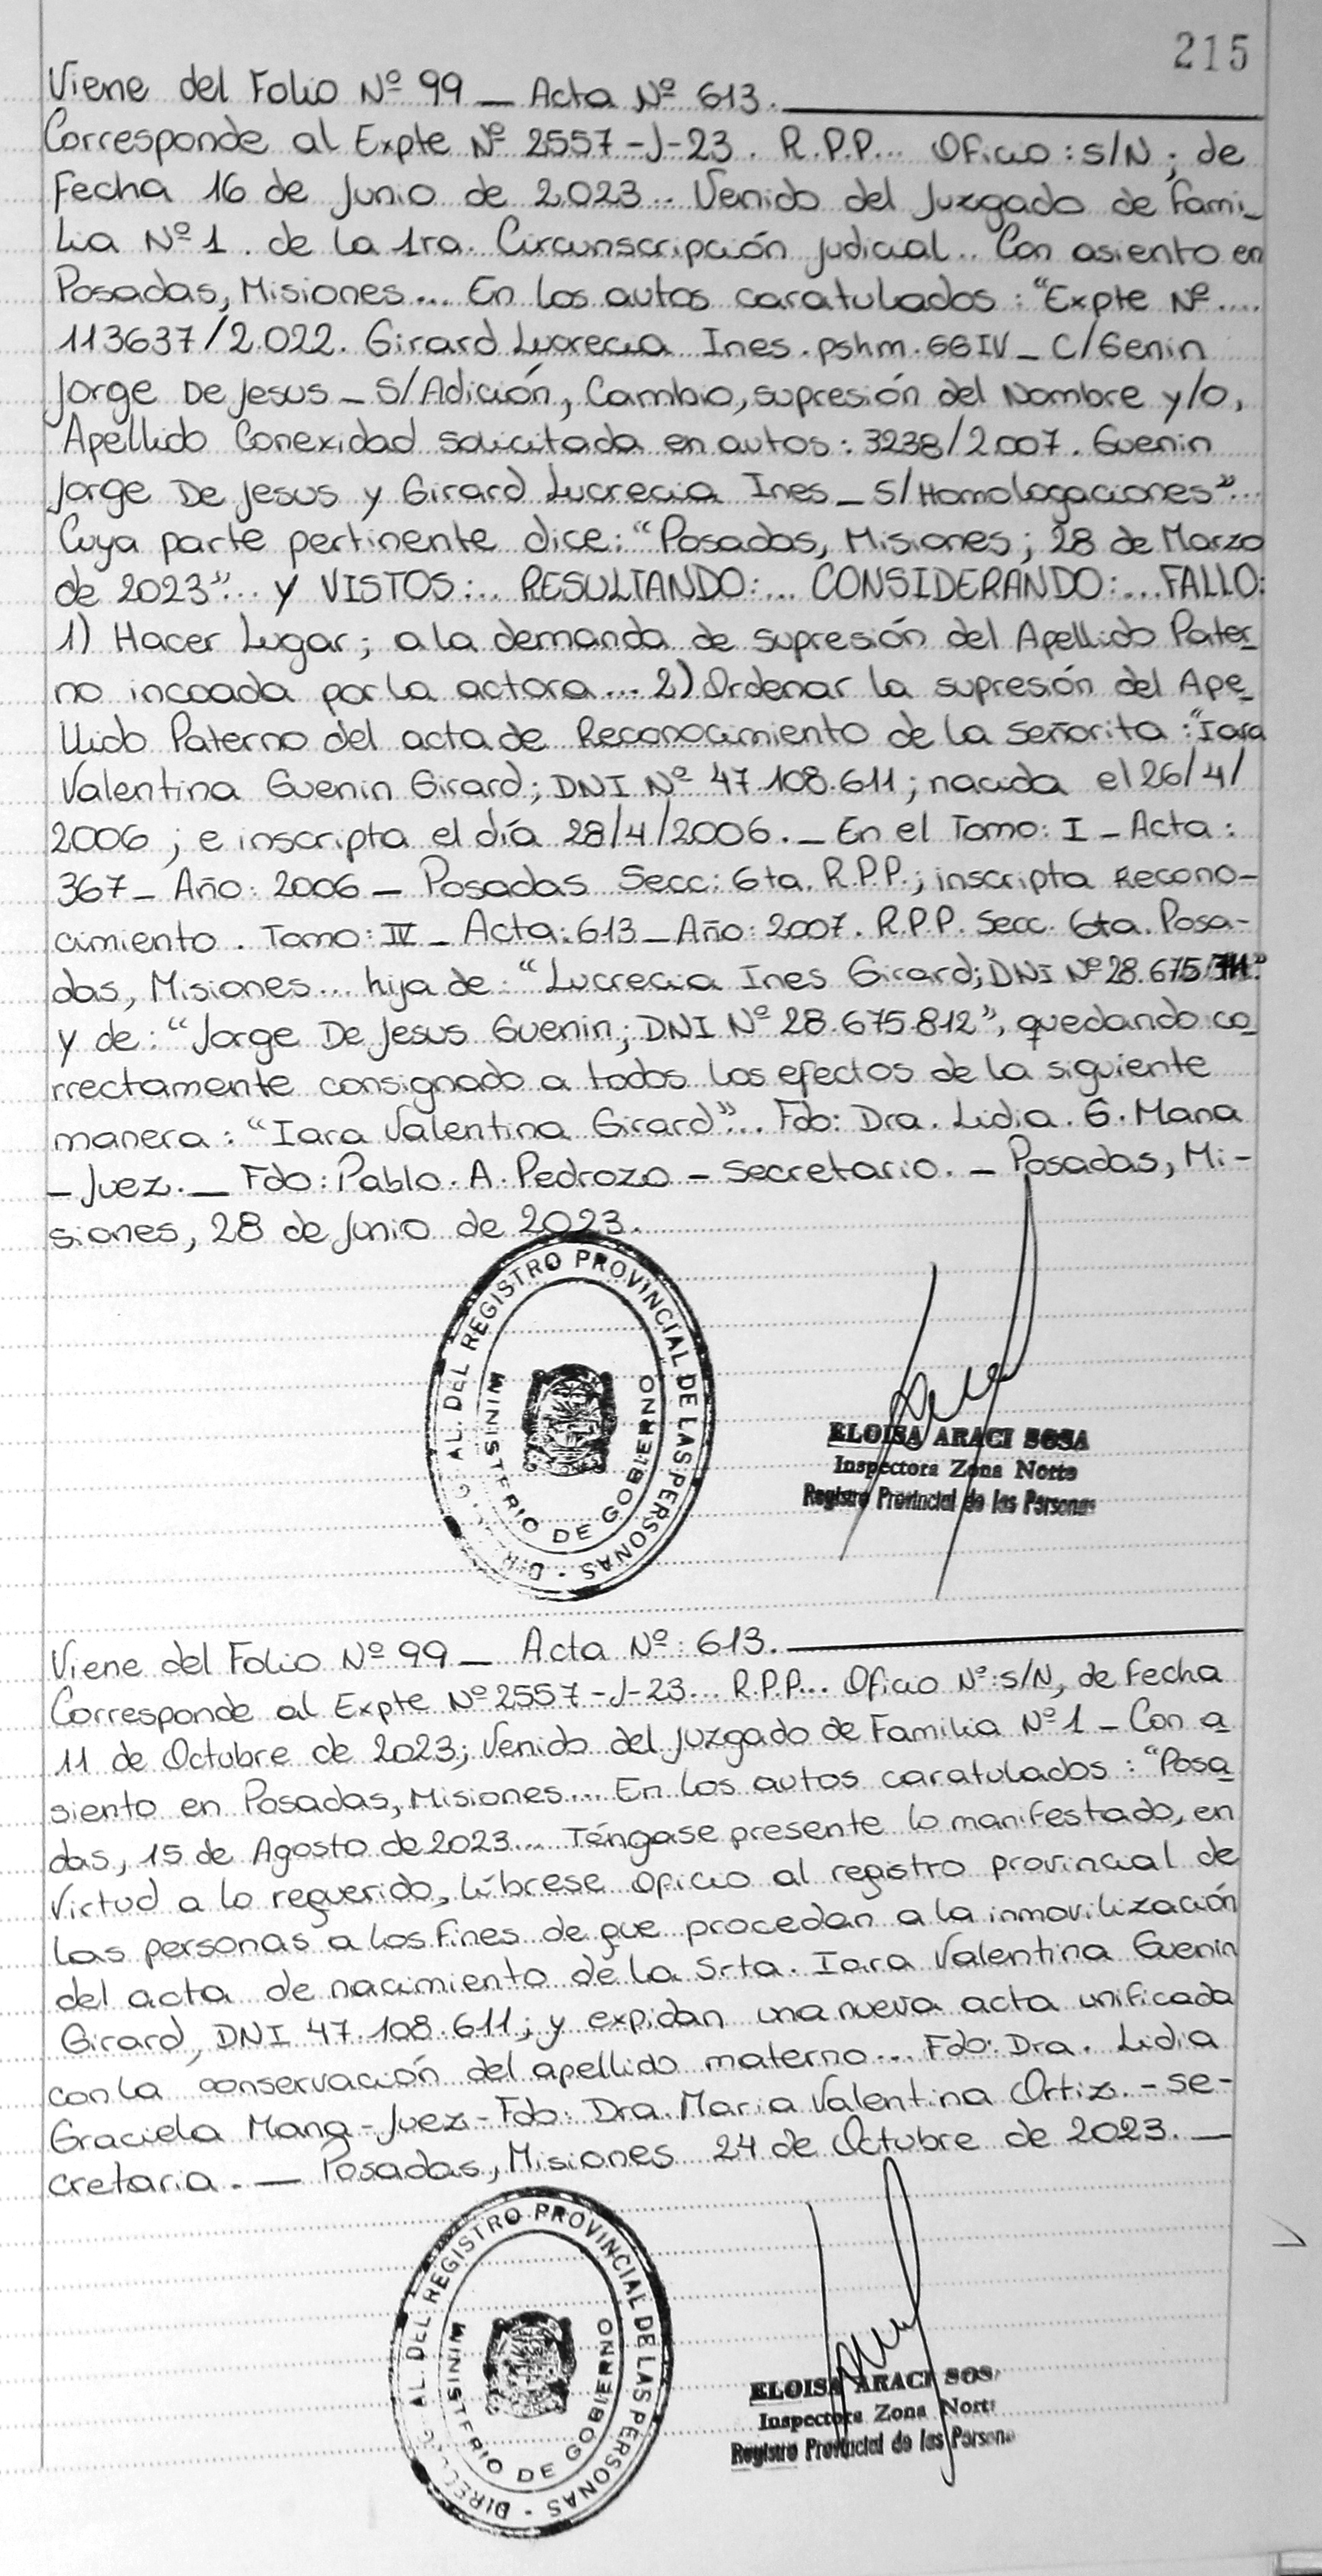 215
Viene del Folio Nº 99 _ Acta Nº 613.
Corresponde al Expte Nº 2557-J-23. R.P.P... Oficio: S/N; de
Fecha 16 de Junio de 2.023... Venido del Juzgado de Fami_
lia Nº 1. de la 1ra. Circunscripción Judicial... Con asiento en
Posadas, Misiones... En los autos caratulados: "Expte Nº....
113637/2.022. Girard Lucrecia Ines. pshm. GGIV _ C/ Genin
Jorge De Jesus _ S/ Adición, Cambio, supresión del Nombre y/o,
Apellido Conexidad solicitada en autos: 3238/2.007. Guenin
Jorge De Jesus y Girard Lucrecia Ines _ S/ Homologaciones"...
Cuya parte pertinente dice: "Posadas, Misiones; 28 de Marzo
de 2023"... y VISTOS:... RESULTANDO:... CONSIDERANDO:... FALLO:
1) Hacer Lugar; a la demanda de supresión del Apellido Pater_
no incoada por la actora... 2) Ordenar la supresión del Ape_
llido Paterno del acta de Reconocimiento de la Señorita: "Iara
Valentina Guenin Girard; DNI Nº 47.108.611; nacida el 26/4/
2006; e inscripta el día 28/4/2006. _ En el Tomo: I _ Acta:
367 _ Año: 2006 _ Posadas Secc: 6ta. R.P.P.; inscripta Recono-
cimiento. Tomo: IV _ Acta: 613 _ Año: 2007. R.P.P. Secc. 6ta. Posa-
das, Misiones... hija de: "Lucrecia Ines Girard; DNI Nº 28.675.
y de: "Jorge De Jesus Guenin; DNI Nº 28.675.812", quedando co_
rrectamente consignado a todos los efectos de la siguiente
manera: "Iara Valentina Girard"... Fdo: Dra. Lidia. G. Mana
_ Juez. _ Fdo: Pablo. A. Pedrozo - Secretario. _ Posadas, Mi-
siones, 28 de Junio de 2023.
AL. DEL REGISTRO PROVINCIAL DE LAS PERSONAS -
MINISTERIO DE GOBIERNO
ELOISA ARACI SOSA
Inspectora Zona Norte
Registro Provincial de las Personas
Viene del Folio Nº 99 _ Acta Nº: 613.
Corresponde al Expte Nº 2557-J-23... R.P.P... Oficio Nº: S/N, de fecha
11 de Octubre de 2023; Venido del Juzgado de Familia Nº 1 - Con a_
siento en Posadas, Misiones.... En los autos caratulados: "Posa_
das, 15 de Agosto de 2023... Téngase presente lo manifestado, en
virtud a lo requerido, líbrese oficio al registro provincial de
las personas a los fines de que procedan a la inmovilización
del acta de nacimiento de la Srta. Iara Valentina Guenin
Girard, DNI 47.108.611; y expidan una nueva acta unificada
con la conservación del apellido materno... Fdo: Dra. Lidia
Graciela Mana - Juez - Fdo: Dra. Maria Valentina Ortiz. - Se-
cretaria. _ Posadas, Misiones 24 de Octubre de 2023. _
AL DEL REGISTRO PROVINCIAL DE LAS PERSONAS -
MINISTERIO DE GOBIERNO
ELOISA ARACI SOS
Inspectora Zona Nort
Registro Provincial de las Persona